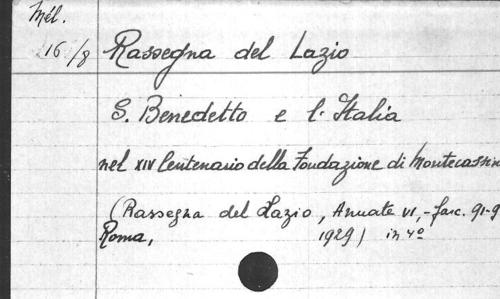 Mél.
16/8 Rassegna del Lazio
S. Benedetto e l'Italia
nel XIV Centenario della Fondazione di Montecassin
(Rassegna del Lazio, Annate VI, - fasc. 91-9
Roma, 1929) in 4º